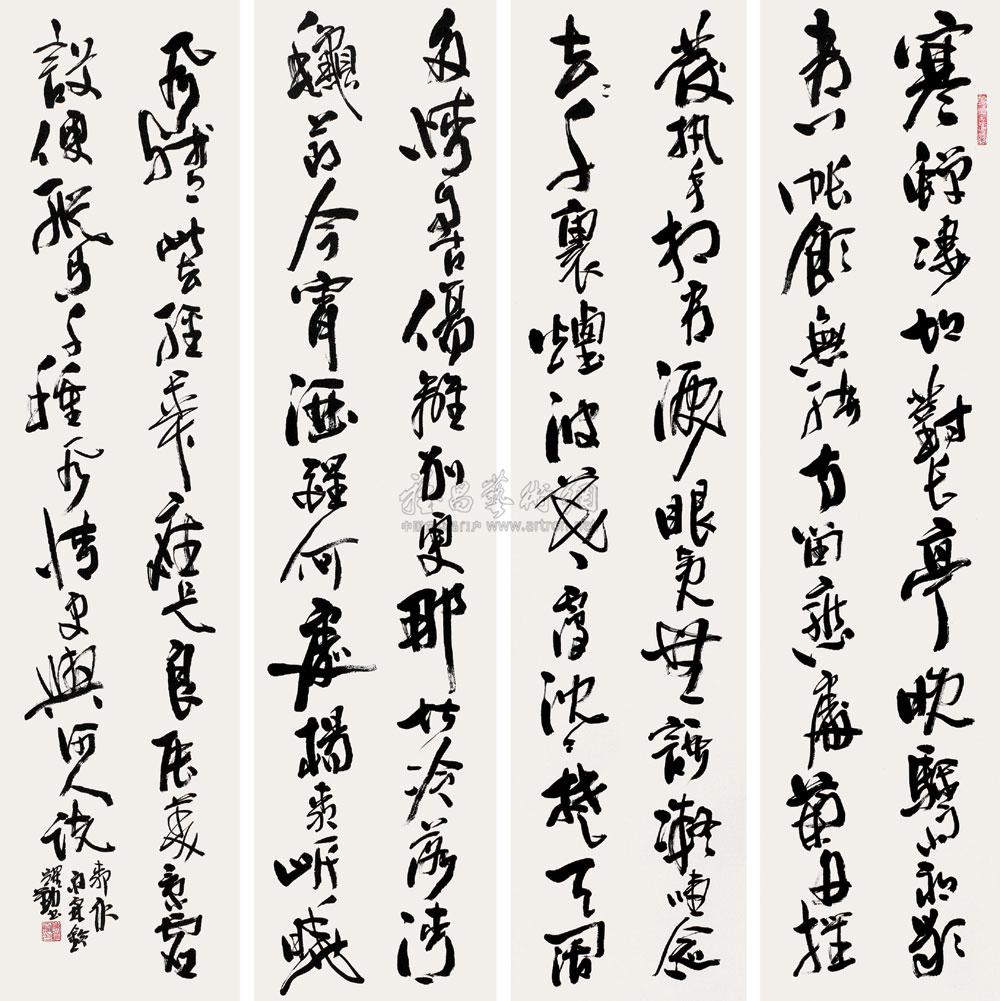 寒蟬淒切對長亭晚驟雨初歇
都門帳飲無緒方留戀處蘭舟催
發執手相看淚眼竟無語凝噎念
去去千裏煙波暮靄沈沈楚天闊
多情自古傷離別更那堪冷落清
龝節今宵酒醒何處楊柳岸曉
風殘月此去經年應是良辰美景虛
設便縱有千種風情更與何人說
雨霖鈴
雅昌藝術網
www.artron.net